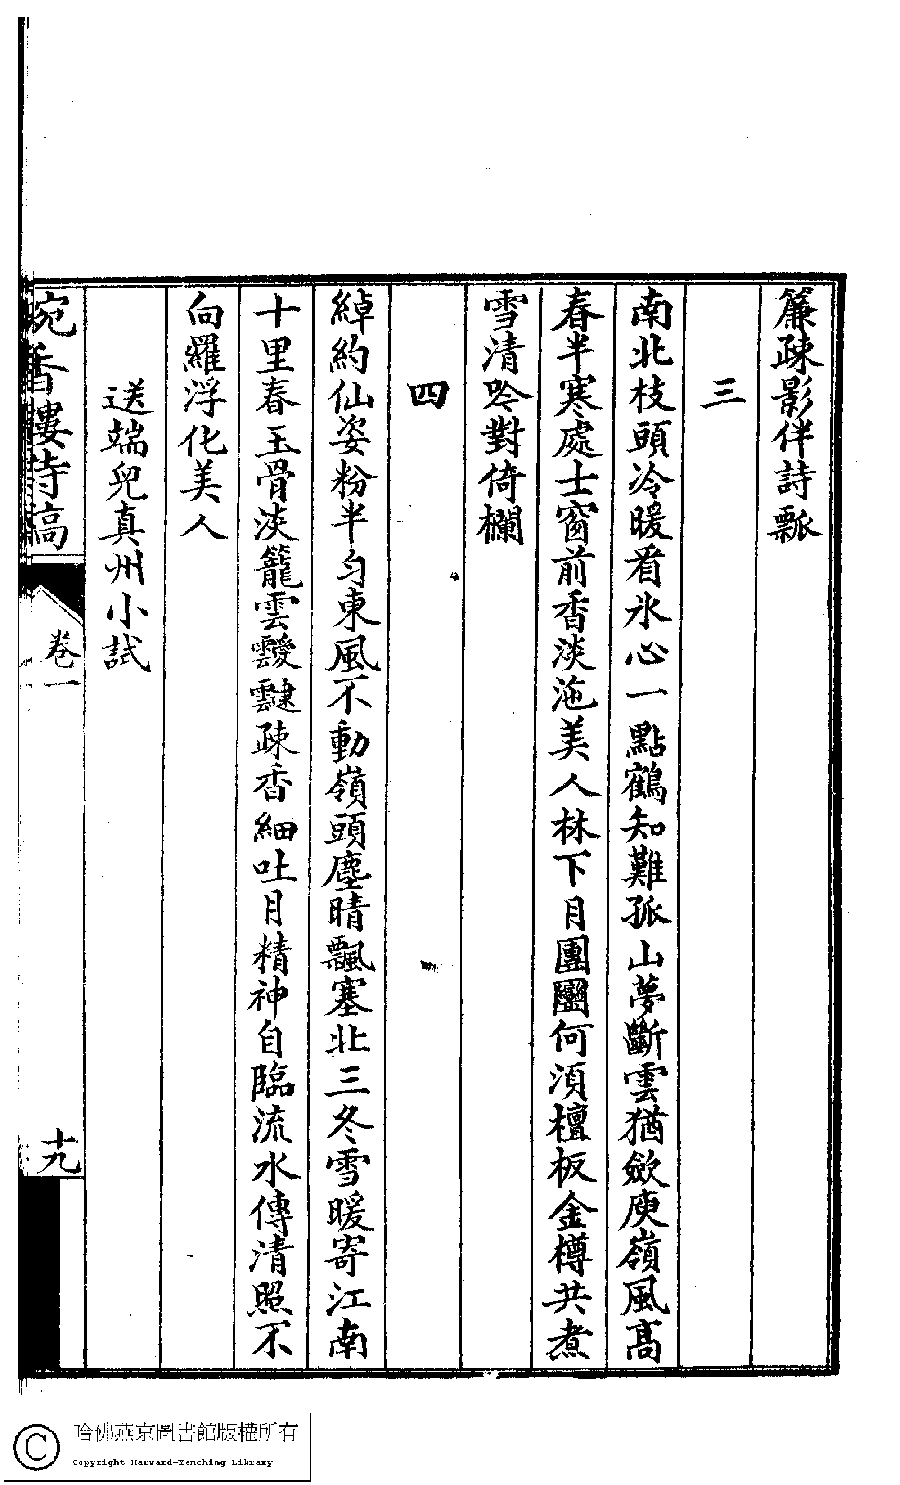 簾疎影伴詩瓢
三
南北枝頭冷暖看氷心一點鶴知難孤山夢斷雲猶斂庾嶺風髙
春半寒處士窗前香淡沲美人林下月團圞何須檀板金樽共煮
雪清吟對倚欄
四
綽約仙姿粉半勻東風不動嶺頭塵晴飄塞北三冬雪暖寄江南
十里春玉骨淡籠雲靉靆疎香細吐月精神自臨流水傳清照不
向羅浮化美人
送端兒真州小試
香樓詩稿
卷一
十九
哈佛燕京圖書館版權所有
Copyright Harvard-Yenching Library